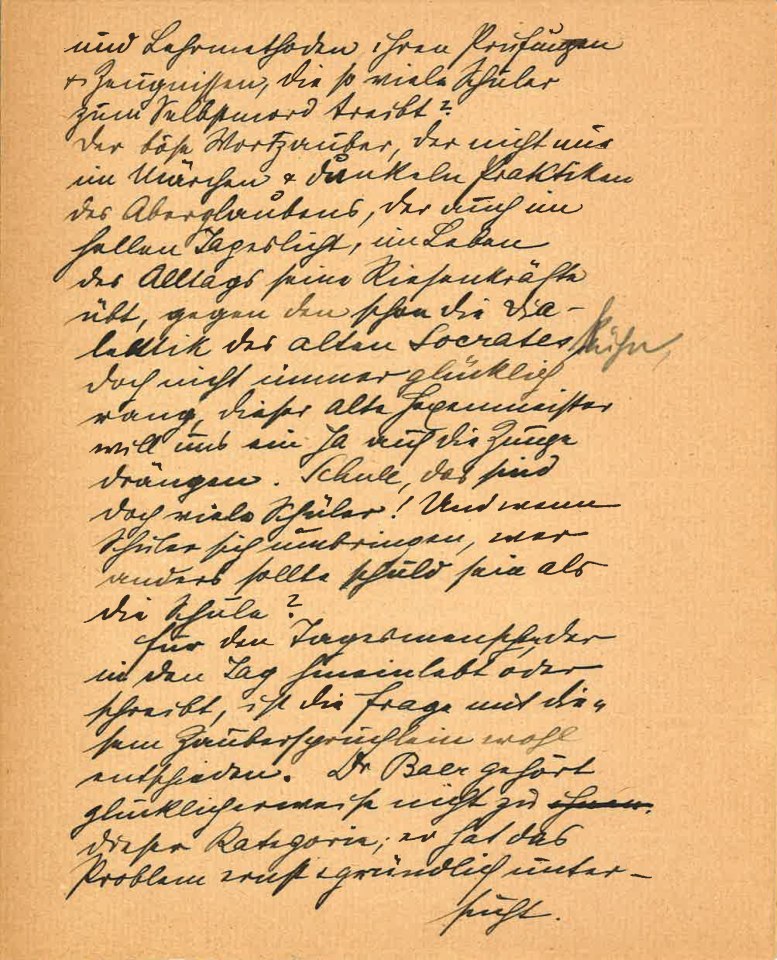 und Lehrmethoden, ihren Prüfungen
& Zeugnissen, die so viele Schüler
zum Selbstmord treibt?
Der böse Wortzauber, der nicht nur
im Märchen & dunkeln Praktiken
des Aberglaubens, der auch im
hellen Tageslicht, im Leben
des Alltags seine Riesenkräfte
übt, gegen den schon die Dia-
lektik des alten Socrates kühn,
doch nicht immer glücklich
rang, dieser alte Hexenmeister
will uns ein Ja auf die Zunge
drängen. Schule, das sind
doch viele Schüler! Und wenn
Schüler sich umbringen, wer
anders sollte schuld sein als
die Schule?
Für den Tagesmensch, der
in den Tag hineinlebt oder
schreibt, ist die Frage mit die-
sem Zaubersprüchlein wohl
entschieden. Dr Baer gehört
glücklicherweise nicht zu ihnen.
dieser Kategorie; er hat das
Problem ernst & gründlich unter-
sucht.